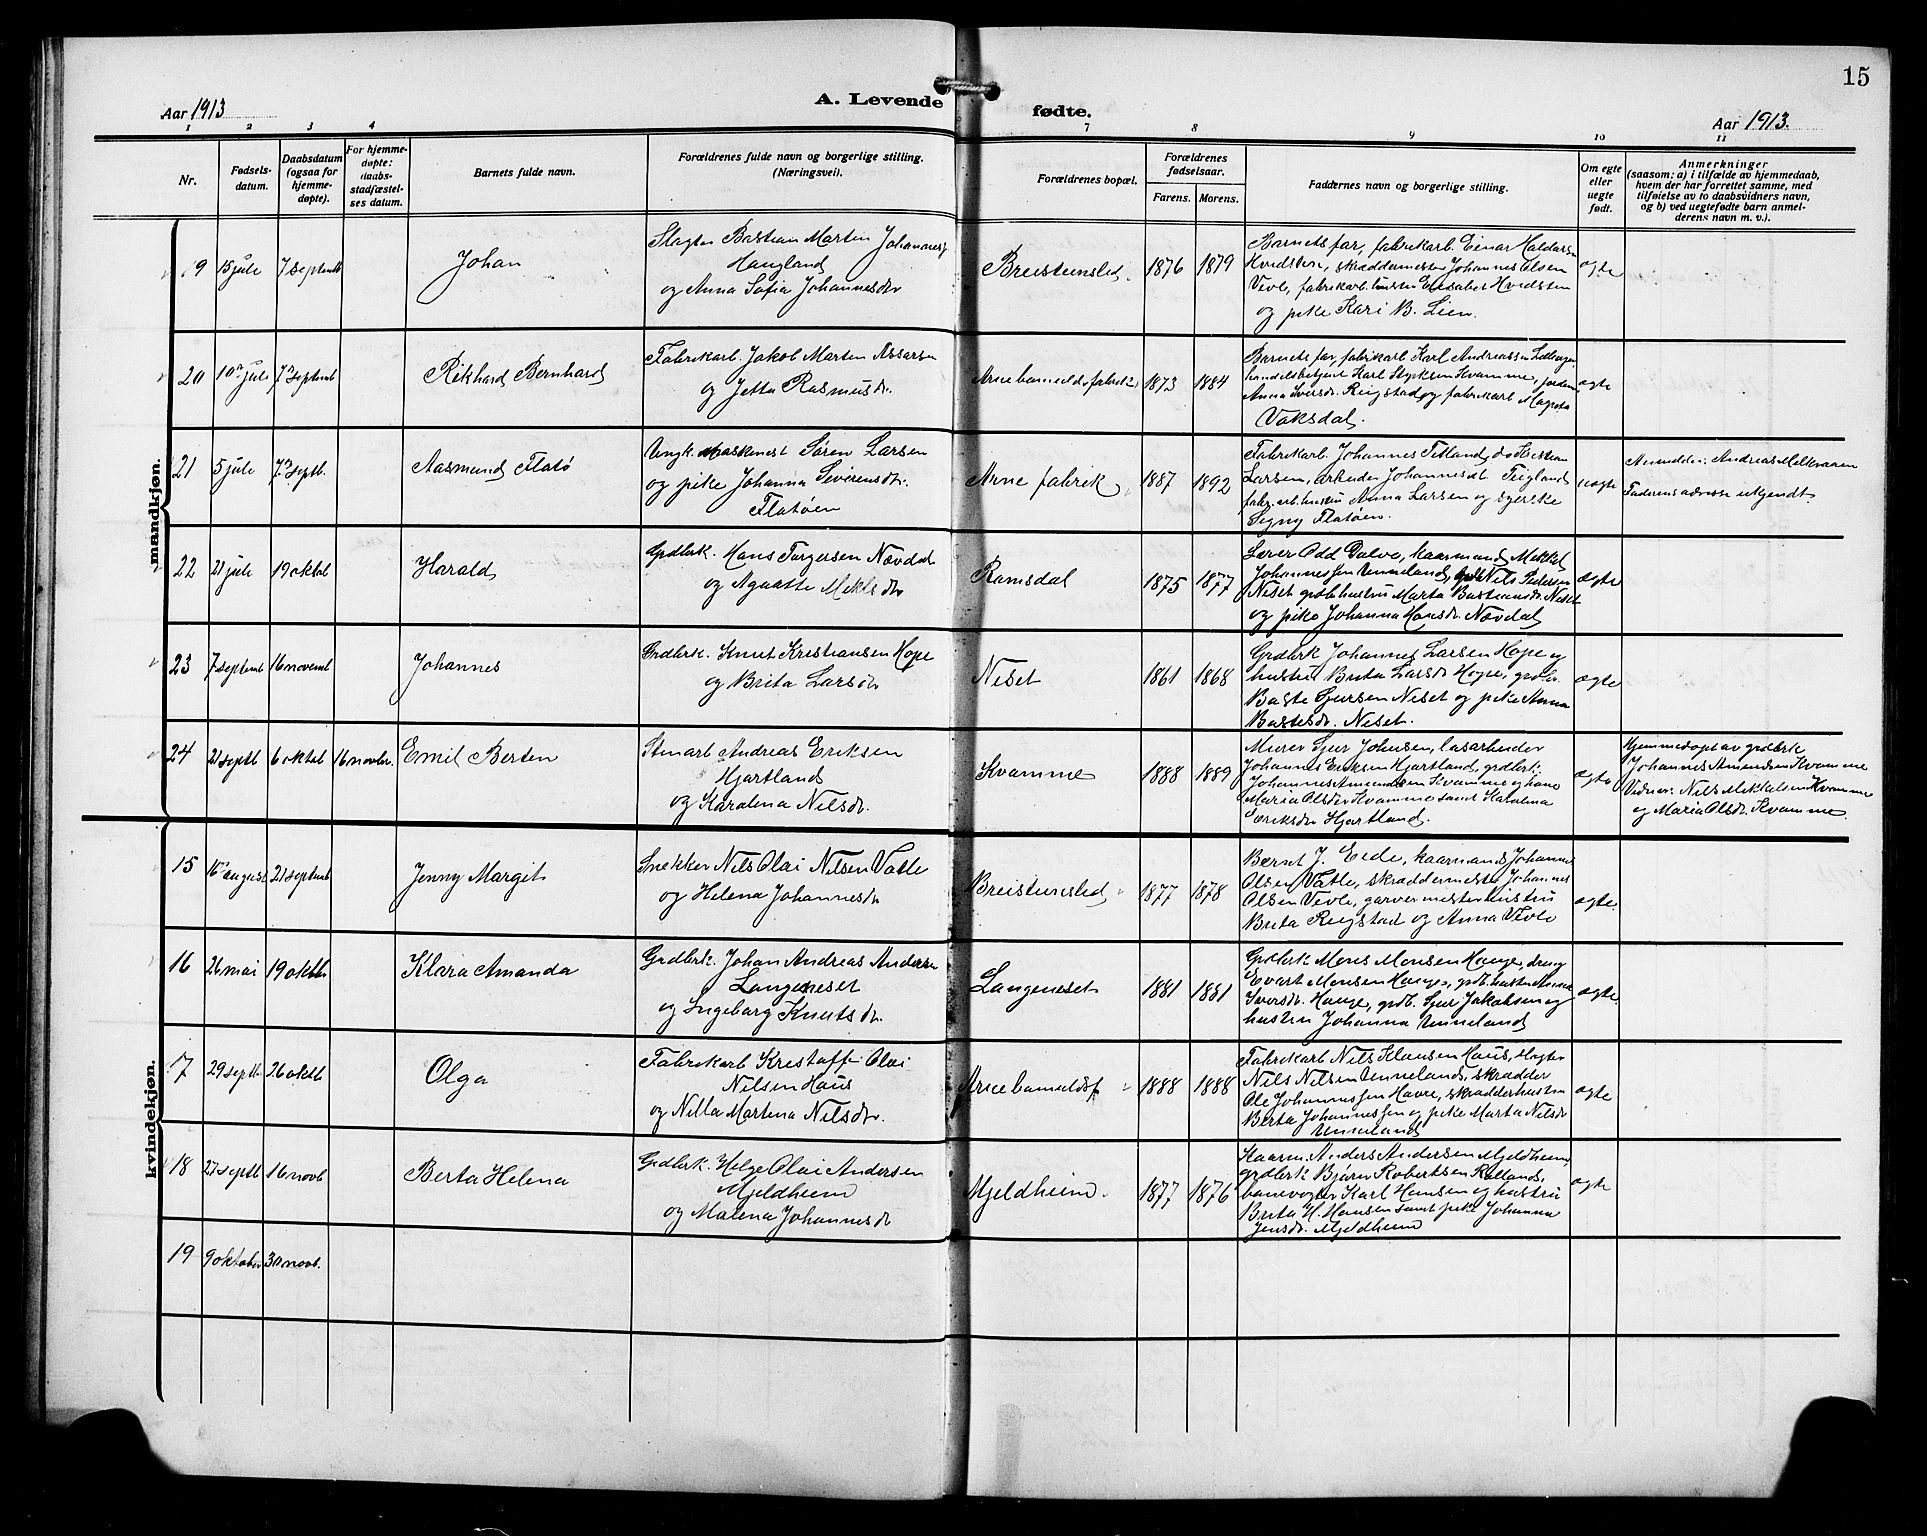 15
Aar 1913
A. Levende
fødte.
Aar 1913.
1 2 3 4 7 8 9 10 11
Nr.
Fødsels-
datum.
Daabsdatum
(ogsaa for
hjemme-
døpte).
For hjemme-
døpte:
daabs-
stadfæstel-
ses datum.
Barnets fulde navn.
Forældrenes fulde navn og borgerlige stilling.
(Næringsvei).
Forældrenes bopæl.
Forældrenes
fødselsaar.
Farens. Morens.
Faddernes navn og borgerlige stilling.
Om egte
eller
uegte
født.
Anmerkninger
(saasom: a) i tilfælde av hjemmedaab,
hvem der har forrettet samme, med
tilføielse av to daabsvidners navn,
og b) ved uegtefødte barn anmel-
derens navn m. v.).
mandkjøn.
19 15 jule 7 septemb
Johan
Slagter Bastian Marten Johannes
Haugland
og Anna Sofia Johannesdr
Breistensled. 1876 1879
Barnets far, fabrikarb. Einar Haldors
Kvidsten, skræddermester Johannes Olsen
Vevle, fabrikarb. hustru Elisabet Hvidsten
og pike Kari B. Lien.
egte
20 10 jule 7 septemb
Rikhard Bernhard
Fabrikarb. Jakob Marten Assersen
og Jetta Rasmusdr.
Arne 1873 1884
Barnets far, fabrikarb Karl Andreassen
handelsbetjent Karl Styksen Kvamme,
Anna Iversdr. Ringstad og fabrikarb Magreta
Vaksdal.
egte
21 5 jule 7 septb.
Aasmund Flatø
Ungk. Søren Larsen
og pike Johanna Severensdr.
Flatøen
Arne fabrik 1887 1892
Fabrikarb. Johannes Titland, do
Larsen, arbeider Johannes
fabr. arb. hustru Anna Larsen og syerske
Signy Flatøen.
uegte
Anmelder: Andreas
Faderens adresse ukjendt.
22 21 jule 19 oktob
Harald
Grdbrk. Hans Torgersen Nævdal
og Agaatte Meklsdr
Ramsdal 1875 1877
Lærer Odd Dalve, kaarmand Mekkel
Johannessen Unneland, Nils Pedersen
Neset grdb hustru Marta Bastiansdr. Neset
og pike Johanna Hansdr. Nævdal
egte
23 7 septemb 16 novemb
Johannes
Grdbrk. Knut Kristiansen Hope
og Brita Larsdr
Neset 1861 1868
Grdbrk Johannes Larsen Hope og
hustru Brita Larsdr Hope, grdbr
Baste Sjursen Neset og pike Anna
Bastesdr. Neset.
egte
24 21 septb 6 oktob 16 novbr.
Emil Berten
Stenarb Andreas Eriksen
Hjartland
og Karolina Nilsdr.
Kvamme 1888 1889
Murer Sjur Johnsen, løsarbeider
Johannes Eriksen Hjartland, grdbrk.
Johannes Amundsen Kvamme og kone
Maria Olsdr Kvamme samt Karolina
Eriksdr Hjartland.
egte
Hjemmedøpt av grdbrk
Johannes Amundsen Kvamme
Vidner: Nils Mikkelsen Kvamme
og Maria Olsdr. Kvamme.
kvindekjøn.
15 16 august 21 septemb
Jenny Margit
Snekker Nils Olai Nilsen Vatle
og Helena Johannesdr
Breistensled 1877 1878
Bernt J. Eide, kaarmand Johannes
Olsen Vatle, skræddermester Johannes
Olsen Vevle, garvermester hustru
Brita Ringstad og Anna Vevle
egte.
16 26 mai 19 oktbr
Klara Amanda
Grdbrk. Johan Andreas Andersen
Langeneset
og Ingeborg Knutsdr.
Langeneset 1881 1881
Grdbrk Mons Monsen Hauge, dreng
Evart Monsen Hauge, grdb. hustru Anna
Iversdr. Hauge, grdb. Sjur Jakobsen og
hustru Johanna Unneland
egte
17 29 septb. 26 oktb
Olga
Fabrikarb Kristoffer Olai
Nilsen Haus
og Nilla Martena Nilsdr.
Arne 1888 1888
Fabrikarb Nils Klausen Haus, slagter
Nils Nilsen Unneland, skrædder
Ole Johannessen Havre, skrædderhustru
Berta Johannessen og pike Marta Nilsdr
Unneland
egte
18 27 septb 16 novb
Berta Helena
Grdbrk. Helge Olai Andersen
Mjeldheim
og Malena Johannesdr
Mjeldheim. 1877 1876
Kaarm. Anders Andersen Mjeldheim,
grdbrk Bjørn Robertsen Rolland,
banevogter Karl Hansen og hustru
Brita H. Hansen samt pike Johanna
Jensdr. Mjeldheim
egte
19 9 oktober 30 novb.